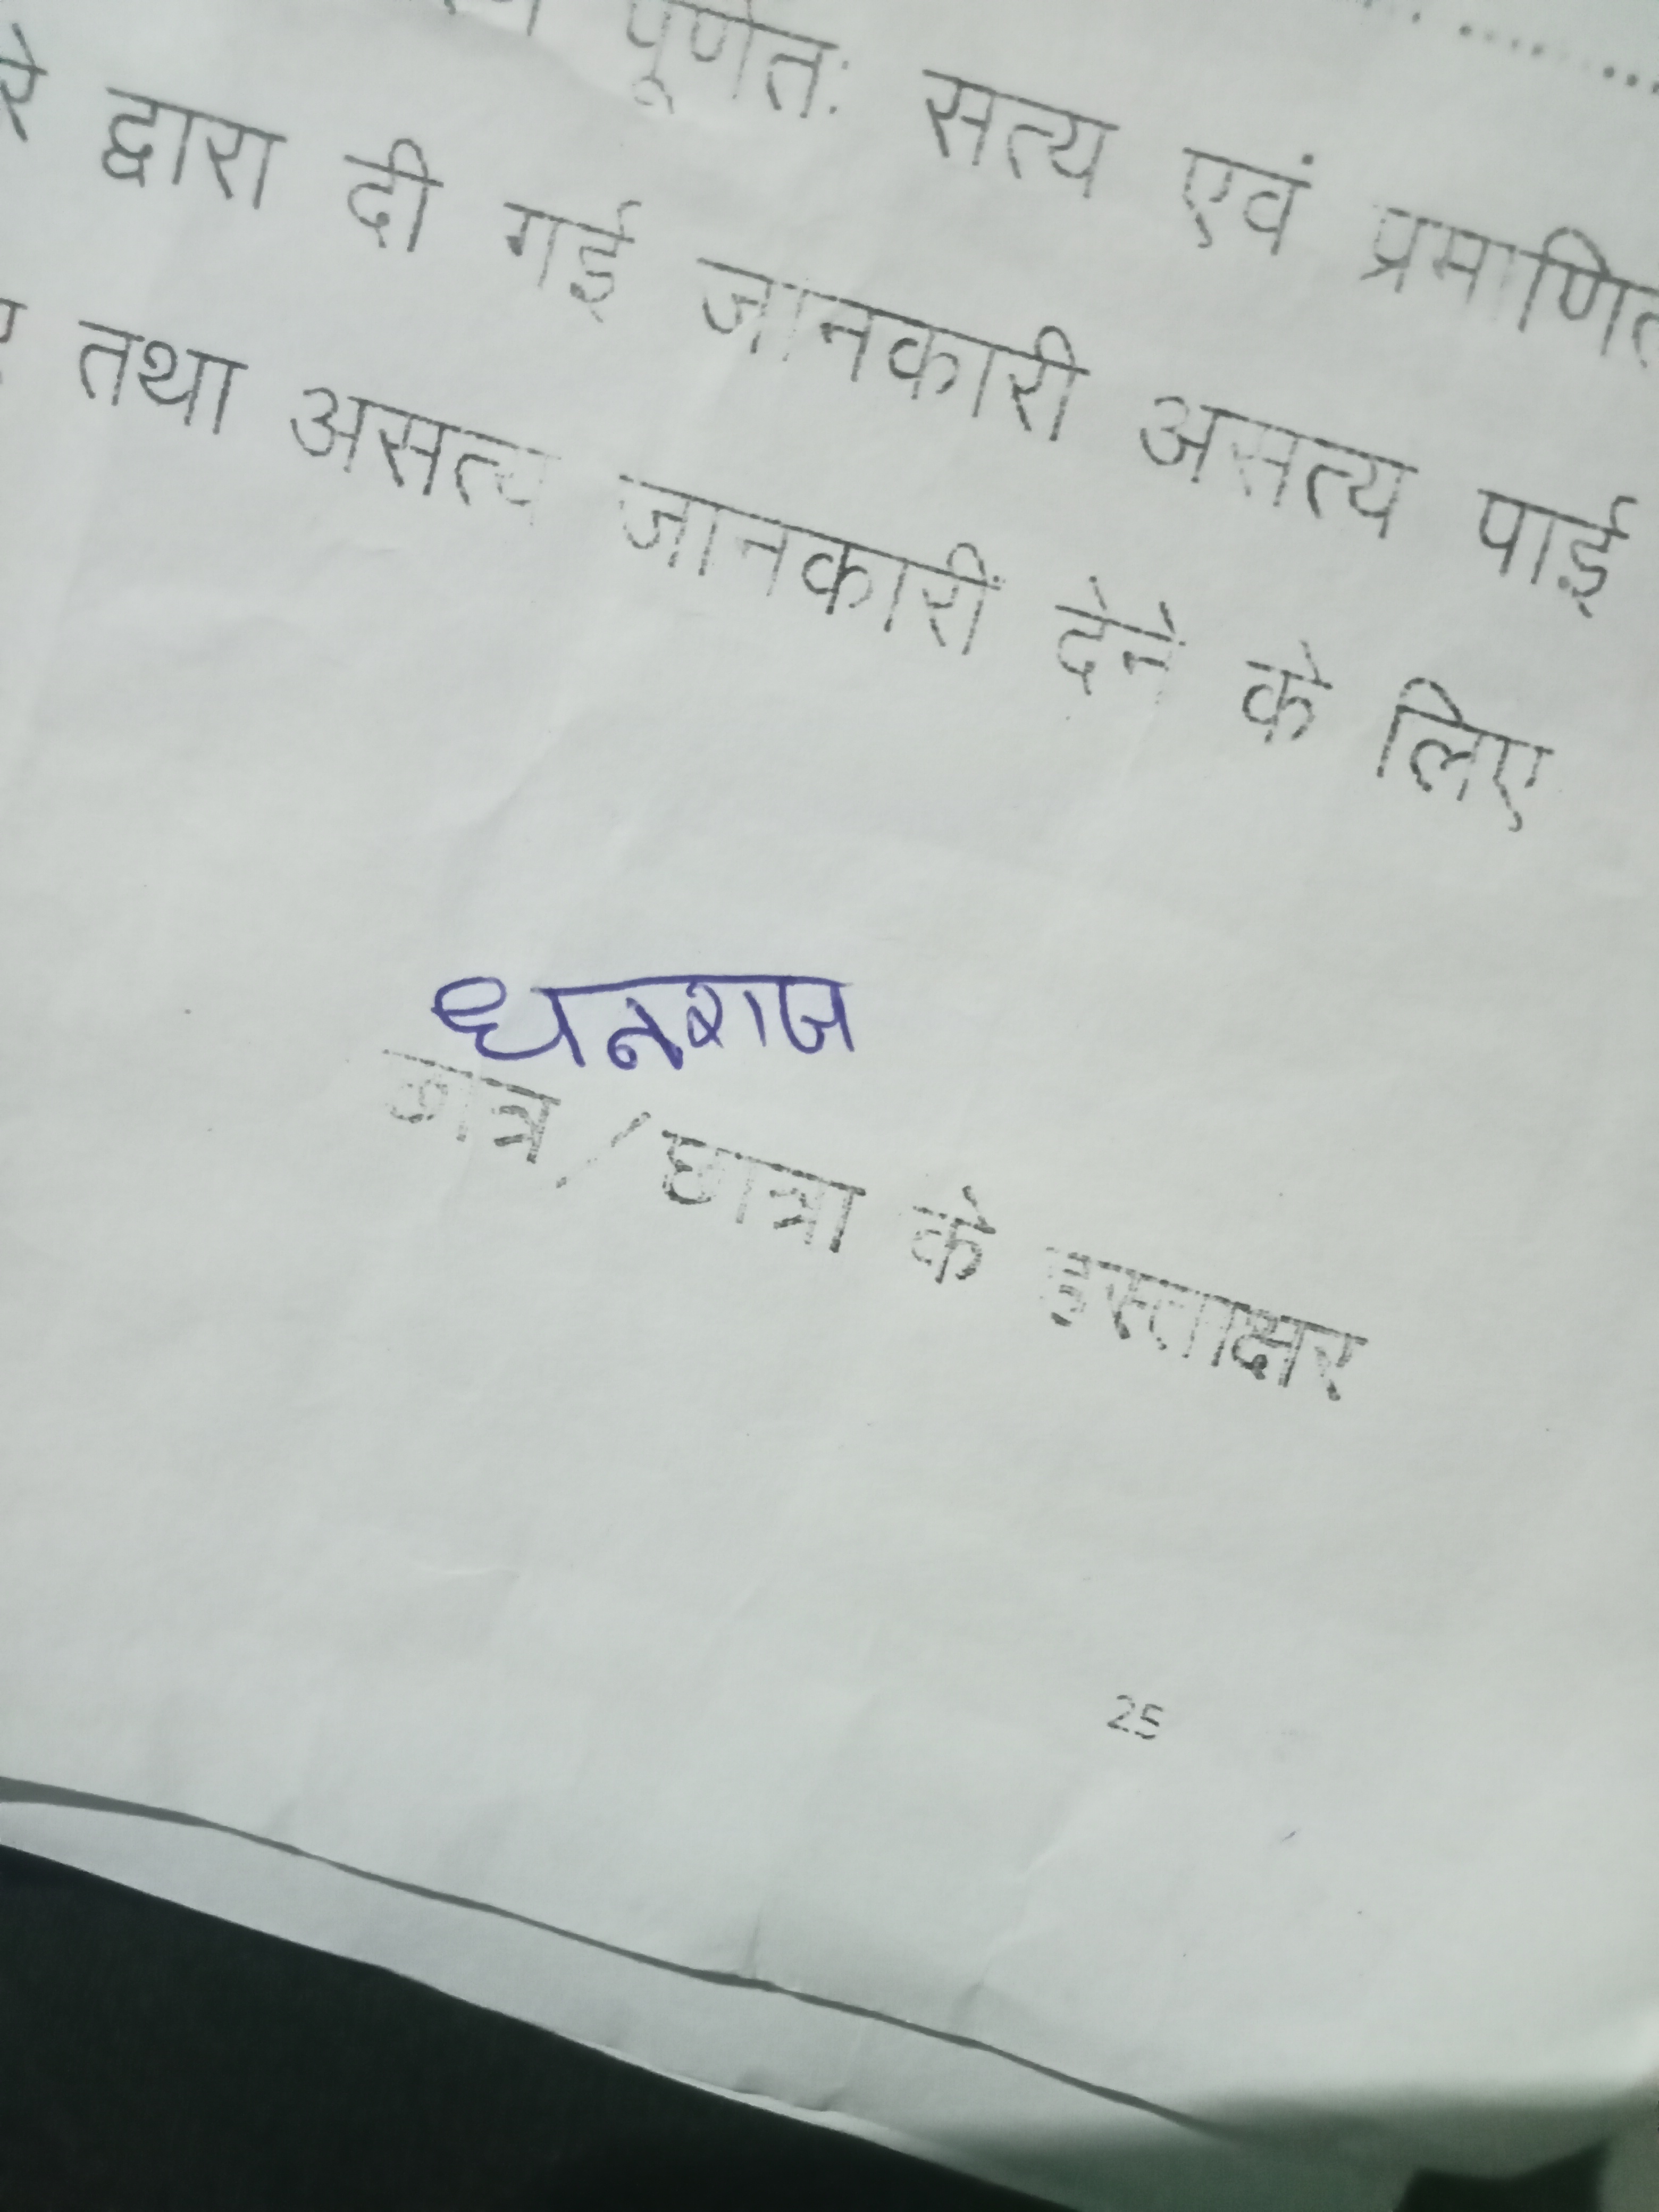 पूर्णतः सत्य एवं प्रमाणित
द्वारा दी गई जानकारी असत्य पाई
तथा असत्य जानकारी देने के लिए
धनराज
छात्र/छात्रा के हस्ताक्षर
25